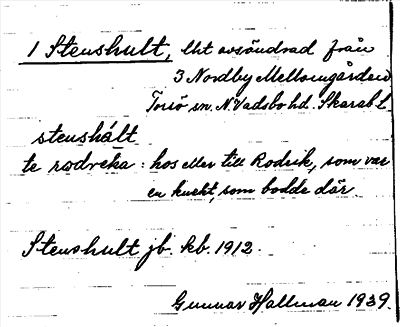 1 Stenshult, lht avsöndrad från
3 Nordby Mellomgården
Torsö sn. N. Vadsbo hd. Skarab. L
stenshùlt
te rodreka : hos eller till Rodrik, som var
en knekt, som bodde där
Stenshult jb. kb. 1912.
Gunnar Hallman 1939.